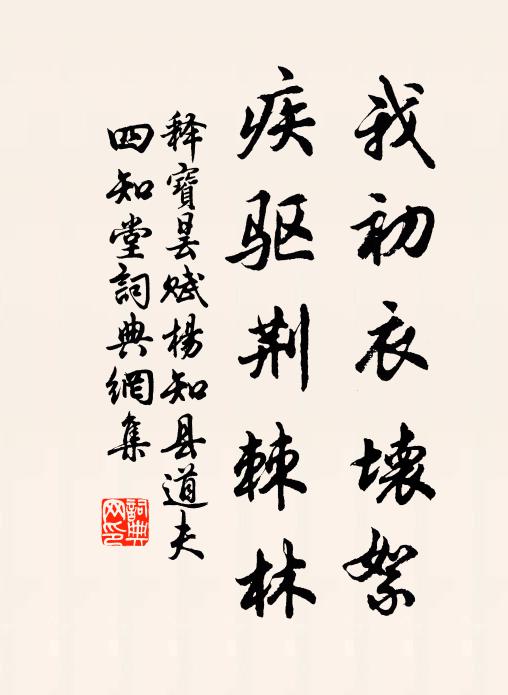 我初衣壊絮
疾驱荆棘林
释寶昙赋楊知县道夫
四知堂詞典網集
詞典
网印